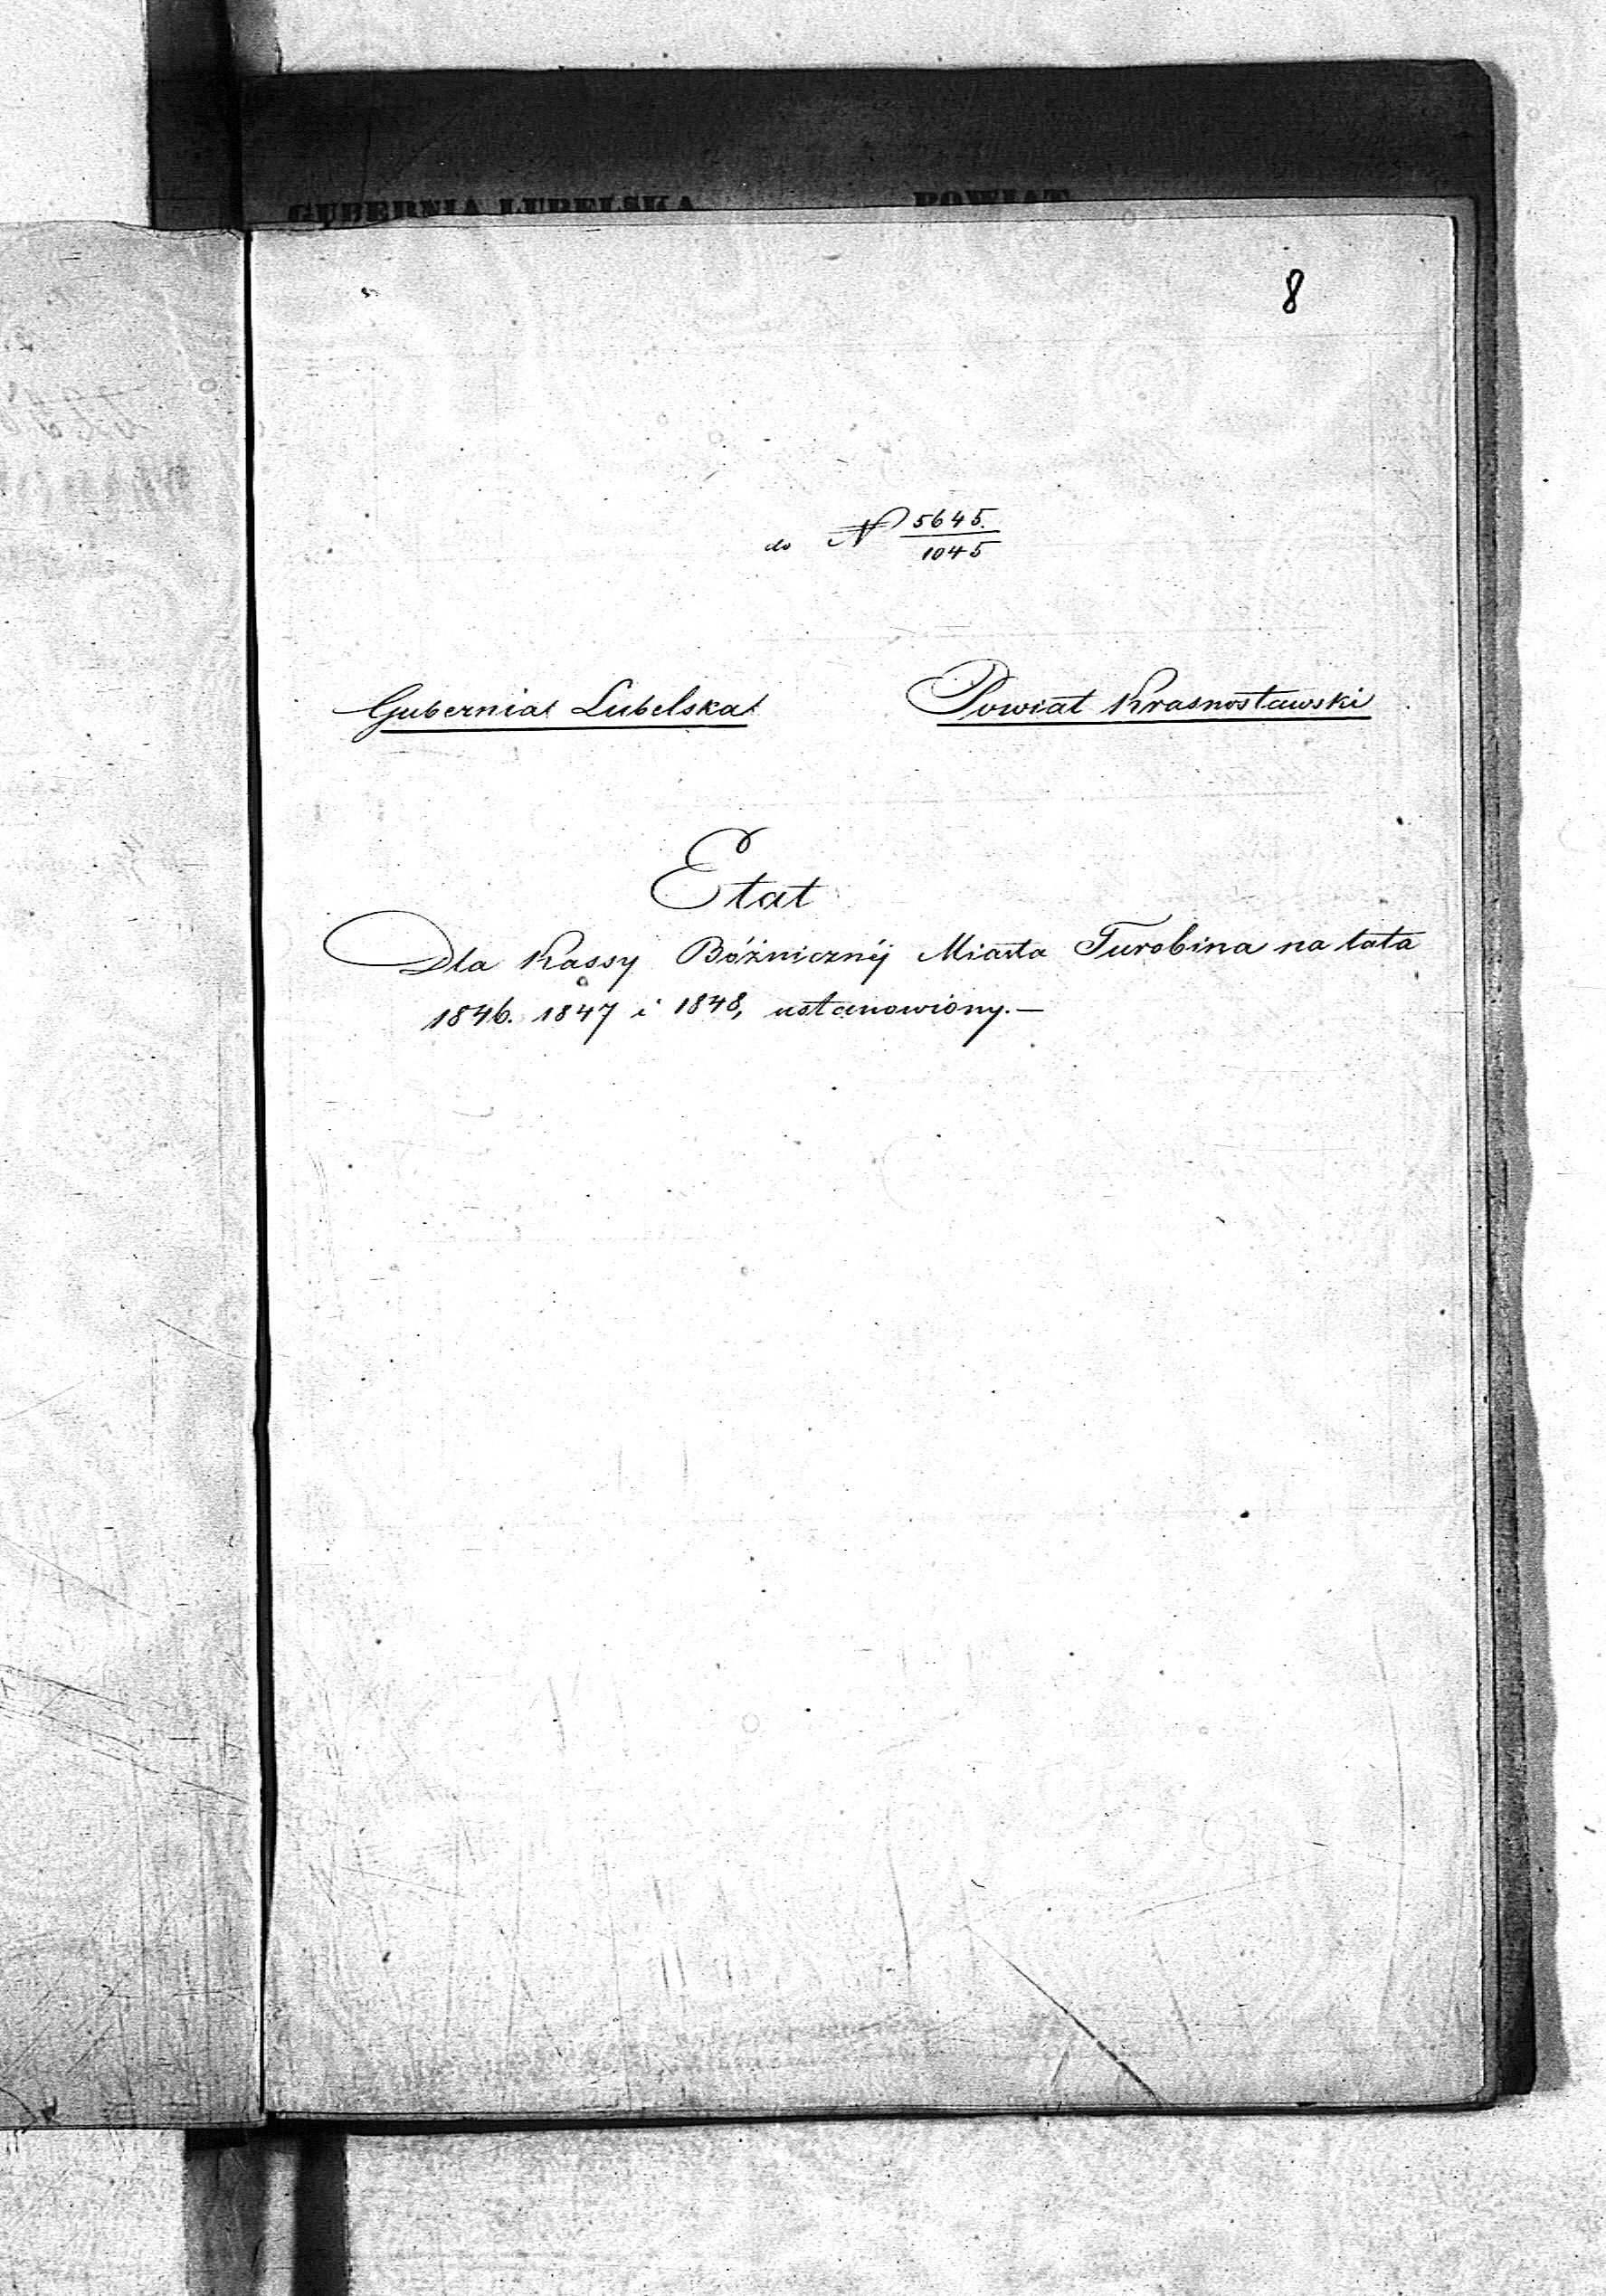 GUBERNIA LUBELSKA POWIAT
8
do N 5645.
1045
Gubernia Lubelska Powiat Krasnostawski
Etat
Dla Kassy Bóżnicznéj Miasta Turobina na lata
1846. 1847 i 1848, ustanowiony.—